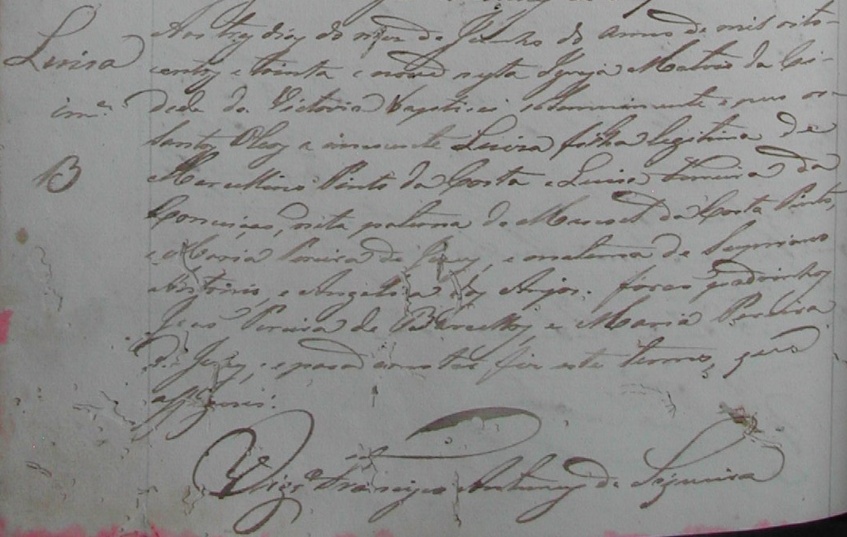 Luisa
in.e
B
Aos trez dias do mez de Junho do anno de mil oito-
centos e trinta e nove nesta Igreja Matriz da Ci-
dade da Victoria baptizei solemnemente e puz os
Santos Oleos a innocente Luiza filha legitima de
Marcellino Pinto da Costa e Luiza Pereira da
Conceiçaõ, neta paterna de Manoel da Costa Pinto,
e Maria Pereira de Jesus, e materna de Sypriano
Antonio, e Angelica dos Anjos. foraõ padrinhos
Joaõ Pereira de Barcellos, e Maria Pereira
de Jesus, e para constar fiz este termo, que
assignei.
Francisco Antunes de Siqueira